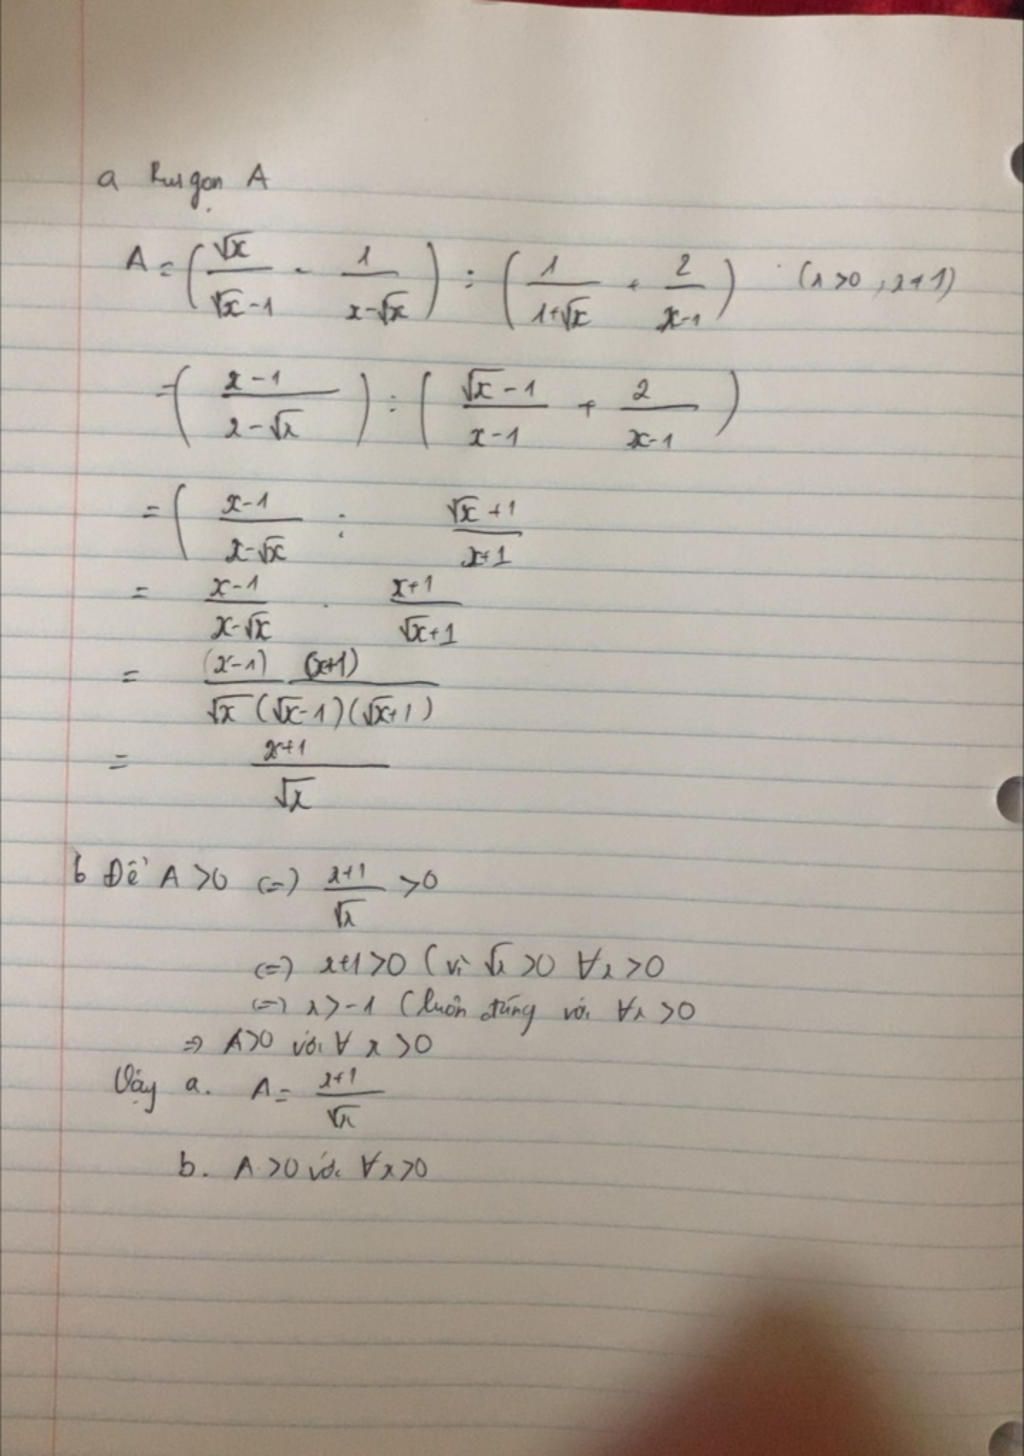 a Rút gọn A
A = (√x/(√x-1) - 1/(x-√x)) : (1/(1+√x) + 2/(x-1)) (x>0, x≠1)
= ((x-1)/(x-√x)) : ((√x-1)/(x-1) + 2/(x-1))
= ( (x-1)/(x-√x) : (√x+1)/(x+1)
= (x-1)/(x-√x) . (x+1)/(√x+1)
= (x-1) (x+1)/(√x (√x-1)(√x+1))
= (x+1)/√x
b Để A >0 (=) (x+1)/√x >0
(=) x+1>0 (vì √x >0 ∀x >0
(=) x>-1 (luôn đúng với ∀x >0
=> A>0 với ∀ x >0
Vậy a. A = (x+1)/√x
b. A >0 với ∀x>0